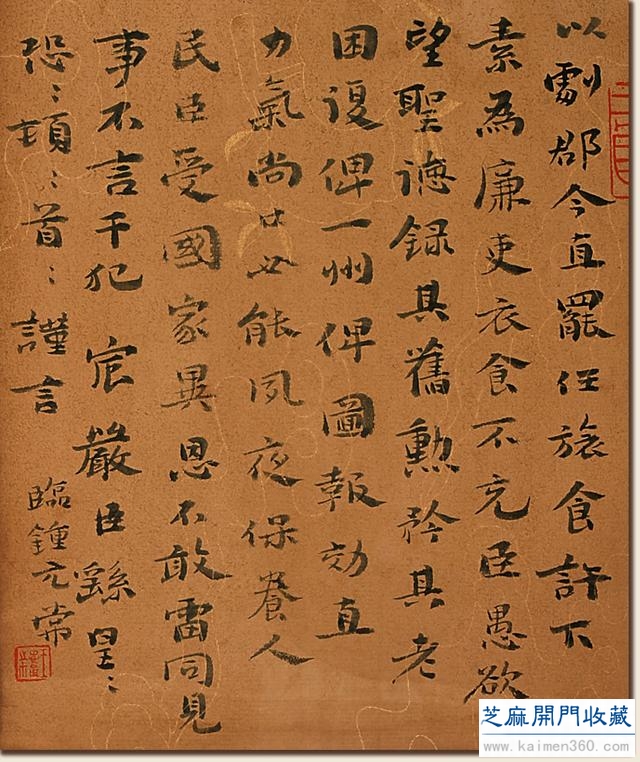 以劇郡今直罷任旅食許下
素為廉吏衣食不充臣愚欲
望聖德錄其舊勳矜其老
困復俾一州俾圖報効直
力氣尚口必能夙夜保養人
民臣受國家異恩不敢雷同見
事不言干犯宸嚴臣繇皇〻
恐〻頓〻首〻謹言
臨鍾元常
芝麻開門收藏
www.kaimen360.com